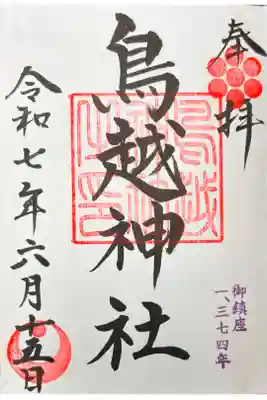 奉拝
鳥越神社
令和七年六月十五日
御鎮座
一、三七四年